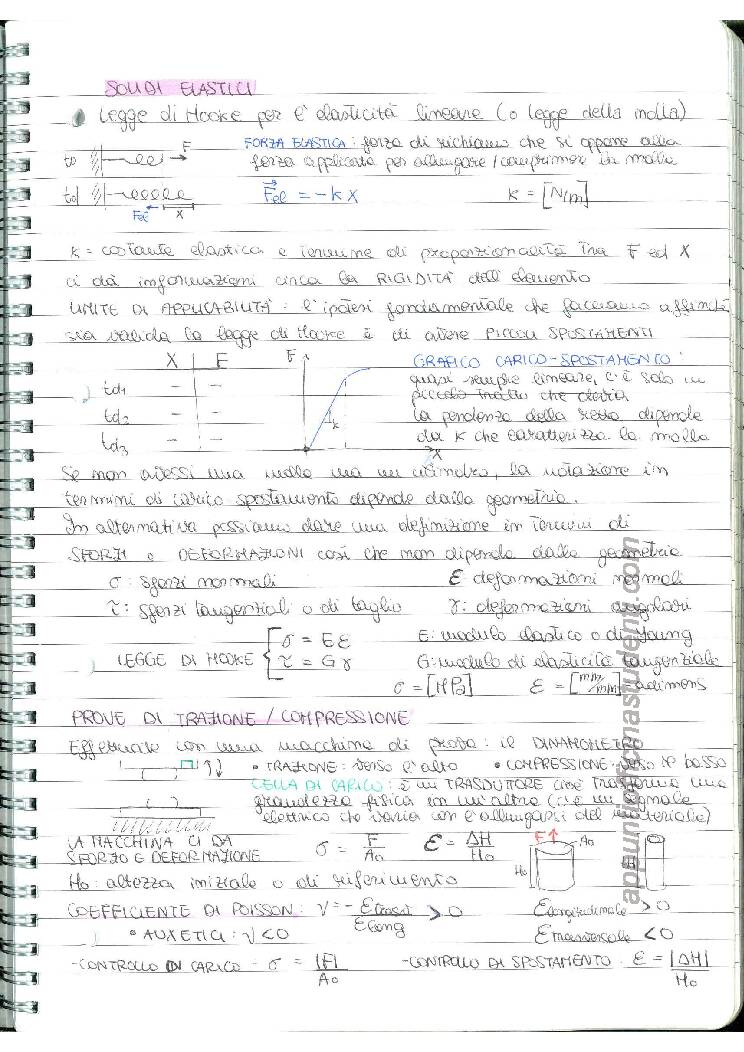 SOLIDI ELASTICI
Legge di Hooke per l'elasticità lineare (o legge della molla)
FORZA ELASTICA: forza di richiamo che si oppone alla
t0 F forza applicata per allungare/comprimere la molla
td Fel x F⃗el = -k x K = [N/m]
K = costante elastica e termine di proporzionalità tra F ed X
ci dà informazioni circa la RIGIDITÀ dell'elemento
LIMITE DI APPLICABILITÀ: l'ipotesi fondamentale che facciamo affinché
sia valida la legge di Hooke è di avere PICCOLI SPOSTAMENTI
X F F GRAFICO CARICO-SPOSTAMENTO:
td1 - - quasi sempre lineare, c'è solo un
piccolo tratto che devia
td2 - - k la pendenza della retta dipende
td3 - - X da K che caratterizza la molla
Se non avessi una molla ma un cilindro, la notazione in
termini di carico spostamento dipende dalla geometria.
In alternativa possiamo dare una definizione in termini di
SFORZI e DEFORMAZIONI così che non dipenda dalla geometria
σ: sforzi normali ε: deformazioni normali
τ: sforzi tangenziali o di taglio γ: deformazioni angolari
LEGGE DI HOOKE { σ = Eε E: modulo elastico o di Young
τ = Gγ G: modulo di elasticità tangenziale
σ = [MPa] ε = [mm/mm] = adimens
PROVE DI TRAZIONE/COMPRESSIONE
Effettuate con una macchina di prova: il DINAMOMETRO
• TRAZIONE: verso l'alto • COMPRESSIONE: verso il basso
CELLA DI CARICO: è un TRASDUTTORE cioè trasforma una
grandezza fisica in un'altra (c'è un segnale
elettrico che varia con l'allungarsi del materiale)
LA MACCHINA CI DÀ
SFORZO E DEFORMAZIONE σ = F/A0 ε = ΔH/H0 F A0 H0 H
H0: altezza iniziale o di riferimento
COEFFICIENTE DI POISSON: ν = -εtrasv/εlong > 0 εlongitudinale > 0
• AUXETICI: ν<0 εtrasversale < 0
-CONTROLLO DI CARICO- σ = |F|/A0 -CONTROLLO DI SPOSTAMENTO- ε = |ΔH|/H0
appuntiofficmastudent.com